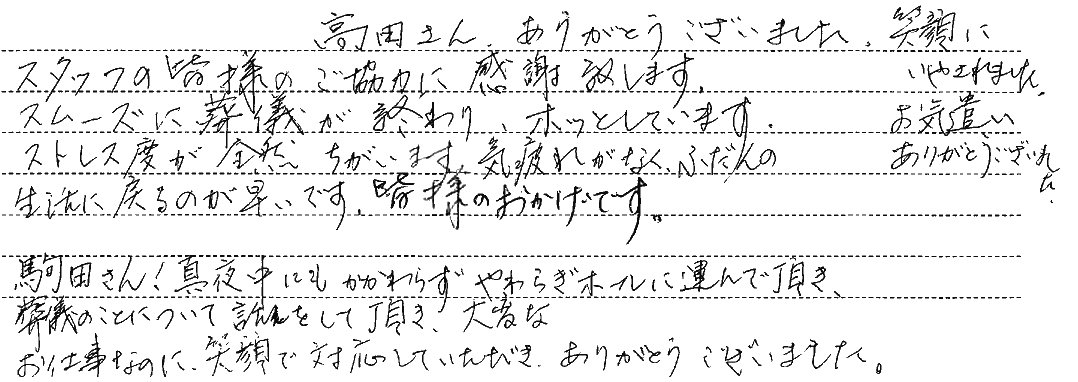 高田さん、ありがとうございました。笑顔に
いやされました。
お気遣い
ありがとうございました。
スタッフの皆様のご協力に感謝致します。
スムーズに葬儀が終わり、ホッとしています。
ストレス度が全然ちがいます。気疲れがなく、ふだんの
生活に戻るのが早いです。皆様のおかげです。
駒田さん！真夜中にもかかわらずやわらぎホールに運んで頂き、
葬儀のことについて話をして頂き、大変な
お仕事なのに、笑顔で対応していただき、ありがとうございました。